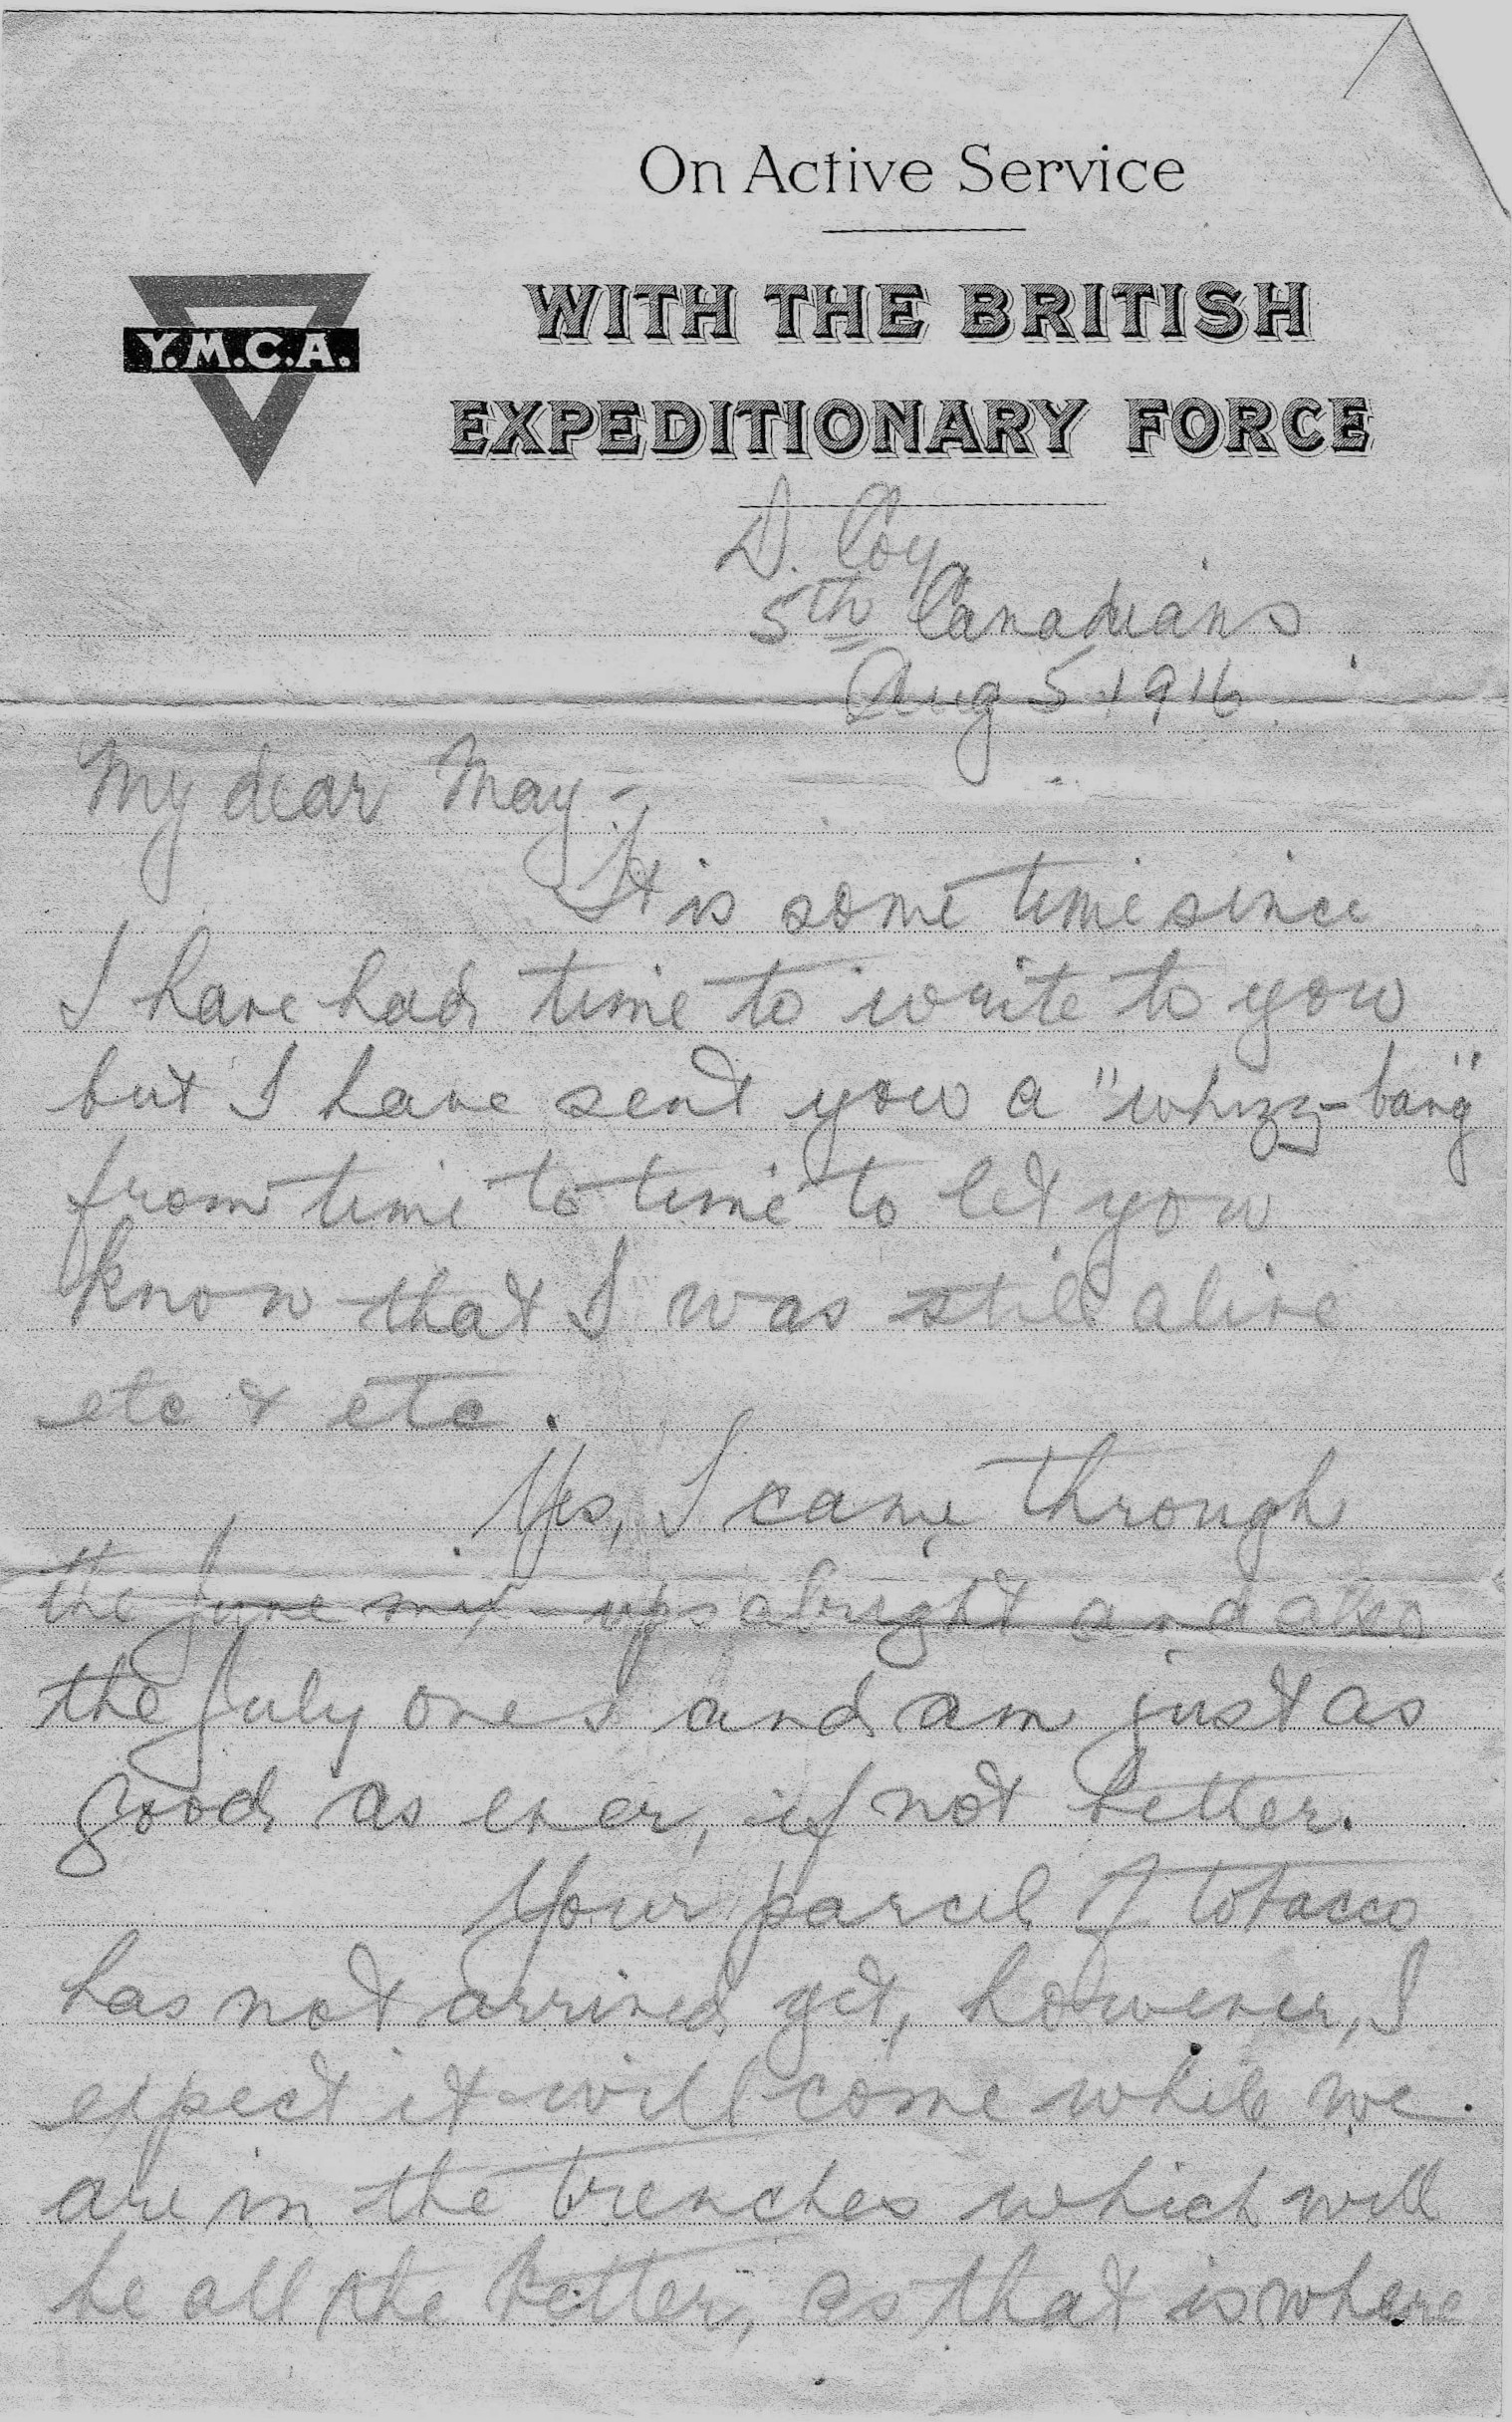 On Active Service
Y.M.C.A.
WITH THE BRITISH
EXPEDITIONARY FORCE
D. Coy
5th Canadians
Aug 5. 1916.
My dear May -
It is some time since
I have had time to write to you
but I have sent you a "whizz-bang"
from time to time to let you
know that I was still alive
etc & etc.
Yes, I came through
the June mix-ups alright and also
the July ones and am just as
good as ever, if not better.
Your parcel of tobacco
has not arrived yet, however, I
expect it will come while we
are in the trenches which will
be all the better, as that is where